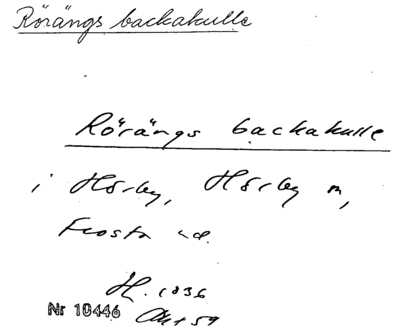 Rörängs backakulle
Rörängs backakulle
i Hörby, Hörby
Frosta
H. 1836
Nr 10446
Akt 59